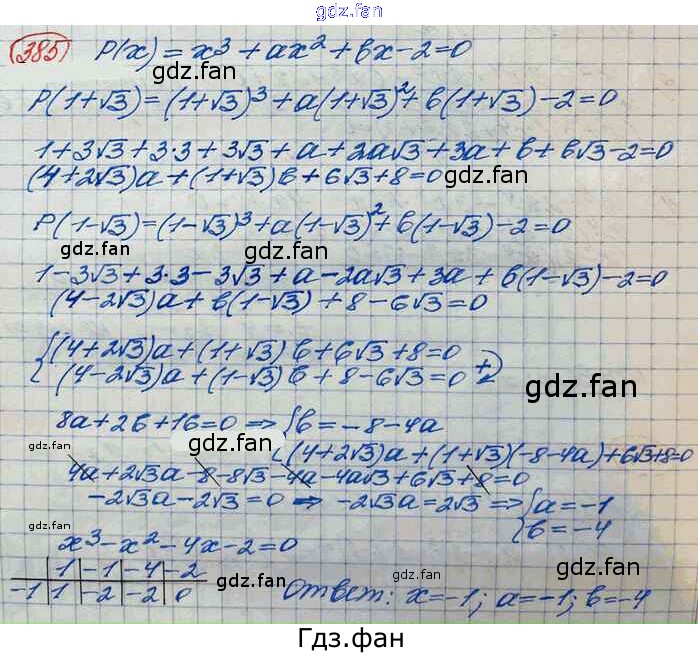 gdz.fan
385 P(x) = x³ + ax² + bx - 2 = 0
gdz.fan gdz.fan
P(1+√3) = (1+√3)³ + a(1+√3)² + b(1+√3) - 2 = 0
gdz.fan
1 + 3√3 + 3·3 + 3√3 + a + 2a√3 + 3a + b + b√3 - 2 = 0
(4+2√3)a + (1+√3)b + 6√3 + 8 = 0
gdz.fan
P(1-√3) = (1-√3)³ + a(1-√3)² + b(1-√3) - 2 = 0
gdz.fan gdz.fan
1 - 3√3 + 3·3 - 3√3 + a - 2a√3 + 3a + b(1-√3) - 2 = 0
(4-2√3)a + b(1-√3) + 8 - 6√3 = 0
{(4+2√3)a + (1+√3)b + 6√3 + 8 = 0
(4-2√3)a + (1-√3)b + 8 - 6√3 = 0 +
gdz.fan
8a + 2b + 16 = 0 ⇒ {b = -8 - 4a
gdz.fan gdz.fan
(4+2√3)a + (1+√3)(-8-4a) + 6√3 + 8 = 0
4a + 2√3a - 8 - 8√3 - 4a - 4a√3 + 6√3 + 8 = 0
gdz.fan
-2√3a - 2√3 = 0 ⇒ -2√3a = 2√3 ⇒ {a = -1
b = -4
gdz.fan gdz.fan
x³ - x² - 4x - 2 = 0
1 -1 -4 -2
gdz.fan gdz.fan
-1 1 -2 -2 0
Ответ: x = -1; a = -1; b = -4
Гдз.фан